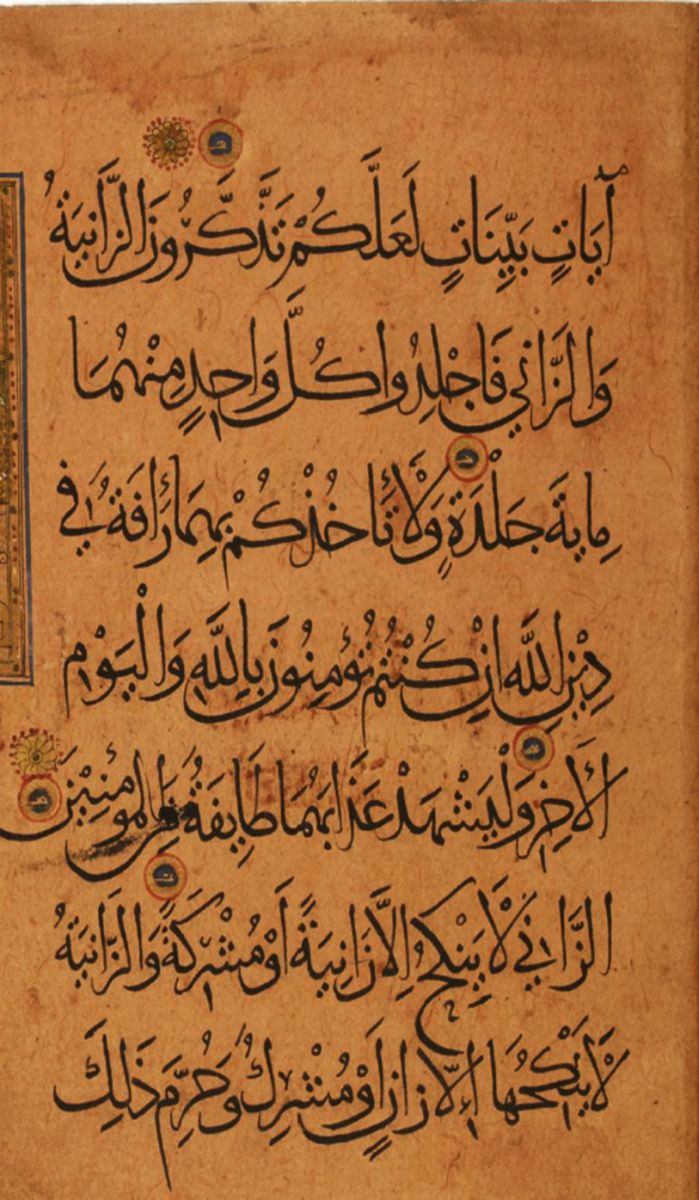 آيَاتٍ بَيِّنَاتٍ لَعَلَّكُمْ تَذَّكَّرُونَ الزَّانِيَةُ
وَالزَّانِي فَاجْلِدُوا كُلَّ وَاحِدٍ مِنْهُمَا
مِايَةَ جَلْدَةٍ وَلَا تَأْخُذْكُمْ بِهِمَا رَأْفَةٌ فِي
دِينِ اللَّهِ اِنْ كُنْتُمْ تُؤْمِنُونَ بِاللَّهِ وَالْيَوْمِ
الْآخِرِ وَلْيَشْهَدْ عَذَابَهُمَا طَايِفَةٌ مِنَ الْمُومِنِيْنَ
الزَّانِي لَا يَنْكِحُ اِلَّا زَانِيَةً أَوْ مُشْرِكَةً وَالزَّانِيَةُ
لَا يَنْكِحُهَا اِلَّا زَانٍ أَوْ مُشْرِكٌ وَحُرِّمَ ذَلِكَ